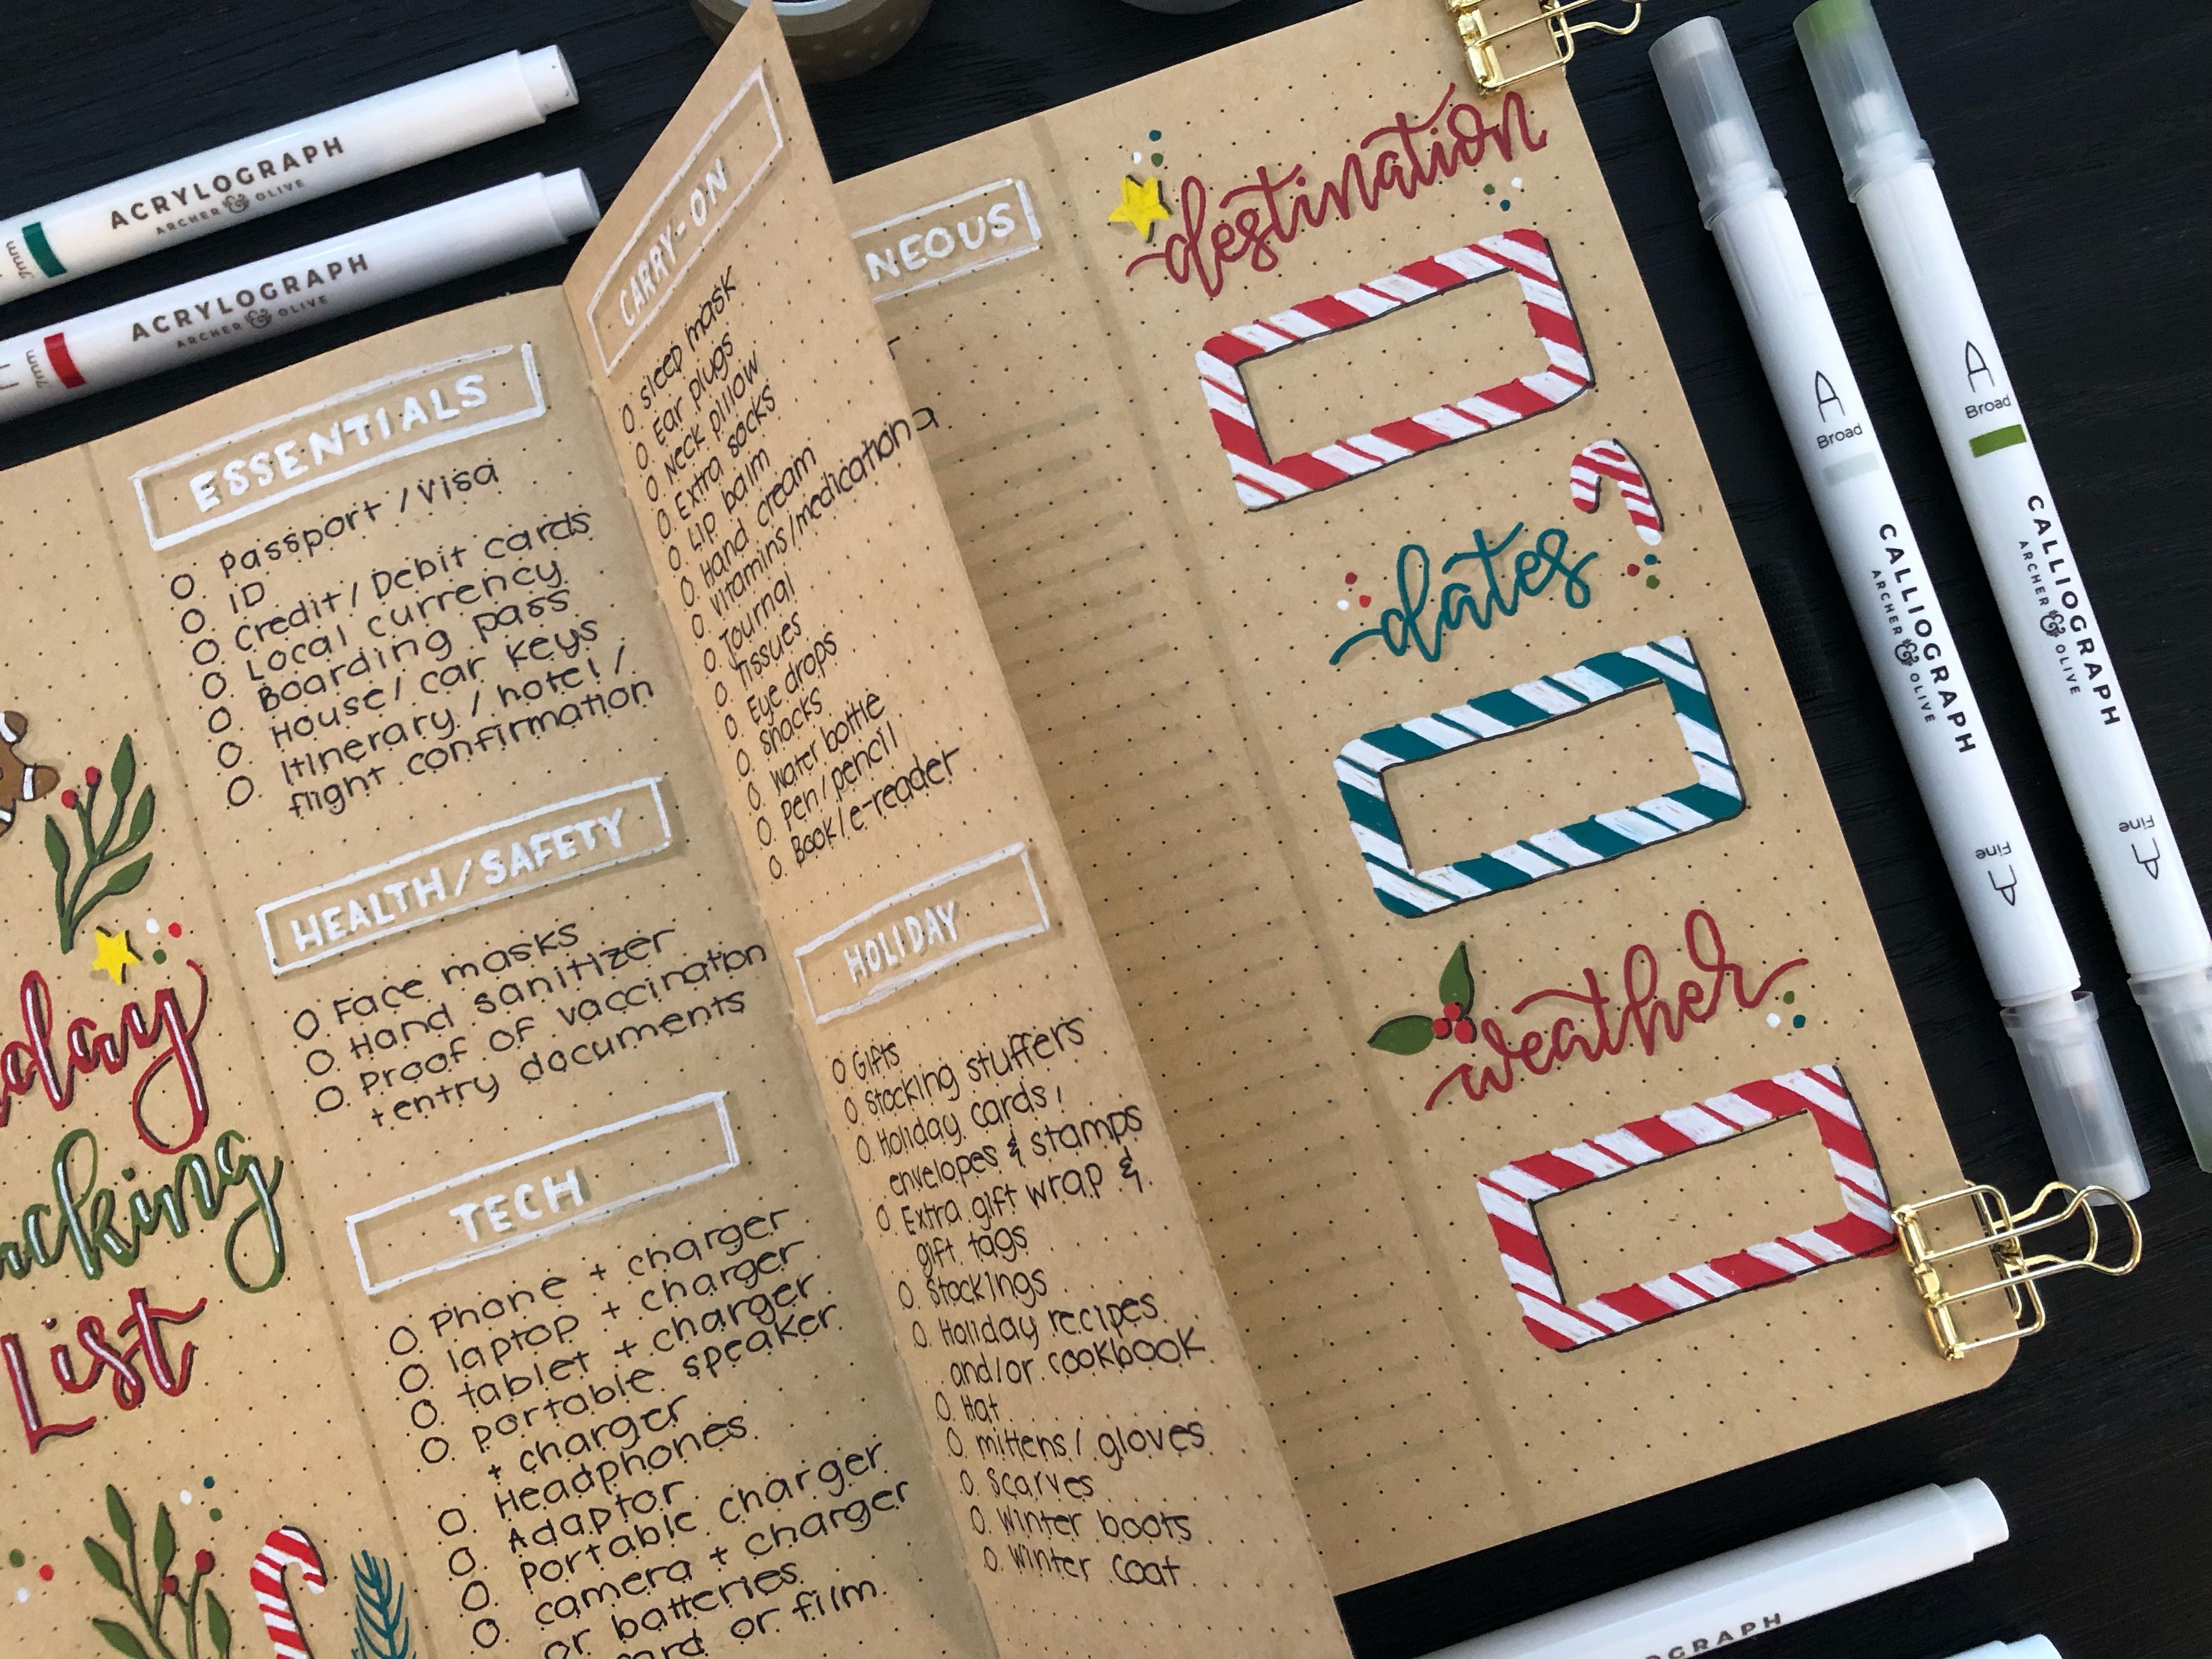 ACRYLOGRAPH
ARCHER & OLIVE
7mm
ACRYLOGRAPH
ARCHER & OLIVE
List
ESSENTIALS
Passport / Visa
ID
Credit / Debit cards
Local currency
Boarding pass
House / car keys
Itinerary / hotel /
flight confirmation
HEALTH/SAFETY
Face masks
Hand sanitizer
Proof of vaccination
+ entry documents
TECH
Phone + charger
laptop + charger
tablet + charger
portable speaker
+ charger
Headphones
Adaptor
Portable charger
camera + charger
or batteries
or film
CARRY-ON
Sleep mask
Ear plugs
Neck pillow
Extra socks
Lip balm
Hand cream
Vitamins/medication
Journal
Tissues
Eye drops
Snacks
Water bottle
Pen / pencil
Book / e-reader
HOLIDAY
Gifts
Stocking stuffers
Holiday cards,
envelopes & stamps
Extra gift wrap &
gift tags
Stockings
Holiday recipes
and/or cookbook
Hat
mittens / gloves
Scarves
Winter boots
Winter coat
NEOUS
destination
dates
weather
Broad
CALLIOGRAPH
ARCHER & OLIVE
Fine
Broad
CALLIOGRAPH
ARCHER & OLIVE
Fine
OGRAPH